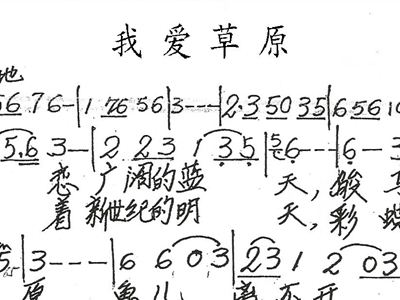 我爱草原
地
56 76-|1 76 56|3---|2·3 50 35|6 56 1
5.6 3-|2 23 1 35|6---|6-3
恋 广阔的蓝 天,骏 马
着 新世纪的明 天,彩 蝶
5|3---|6 6 03|23 1 2 03
原 鱼儿 离不开